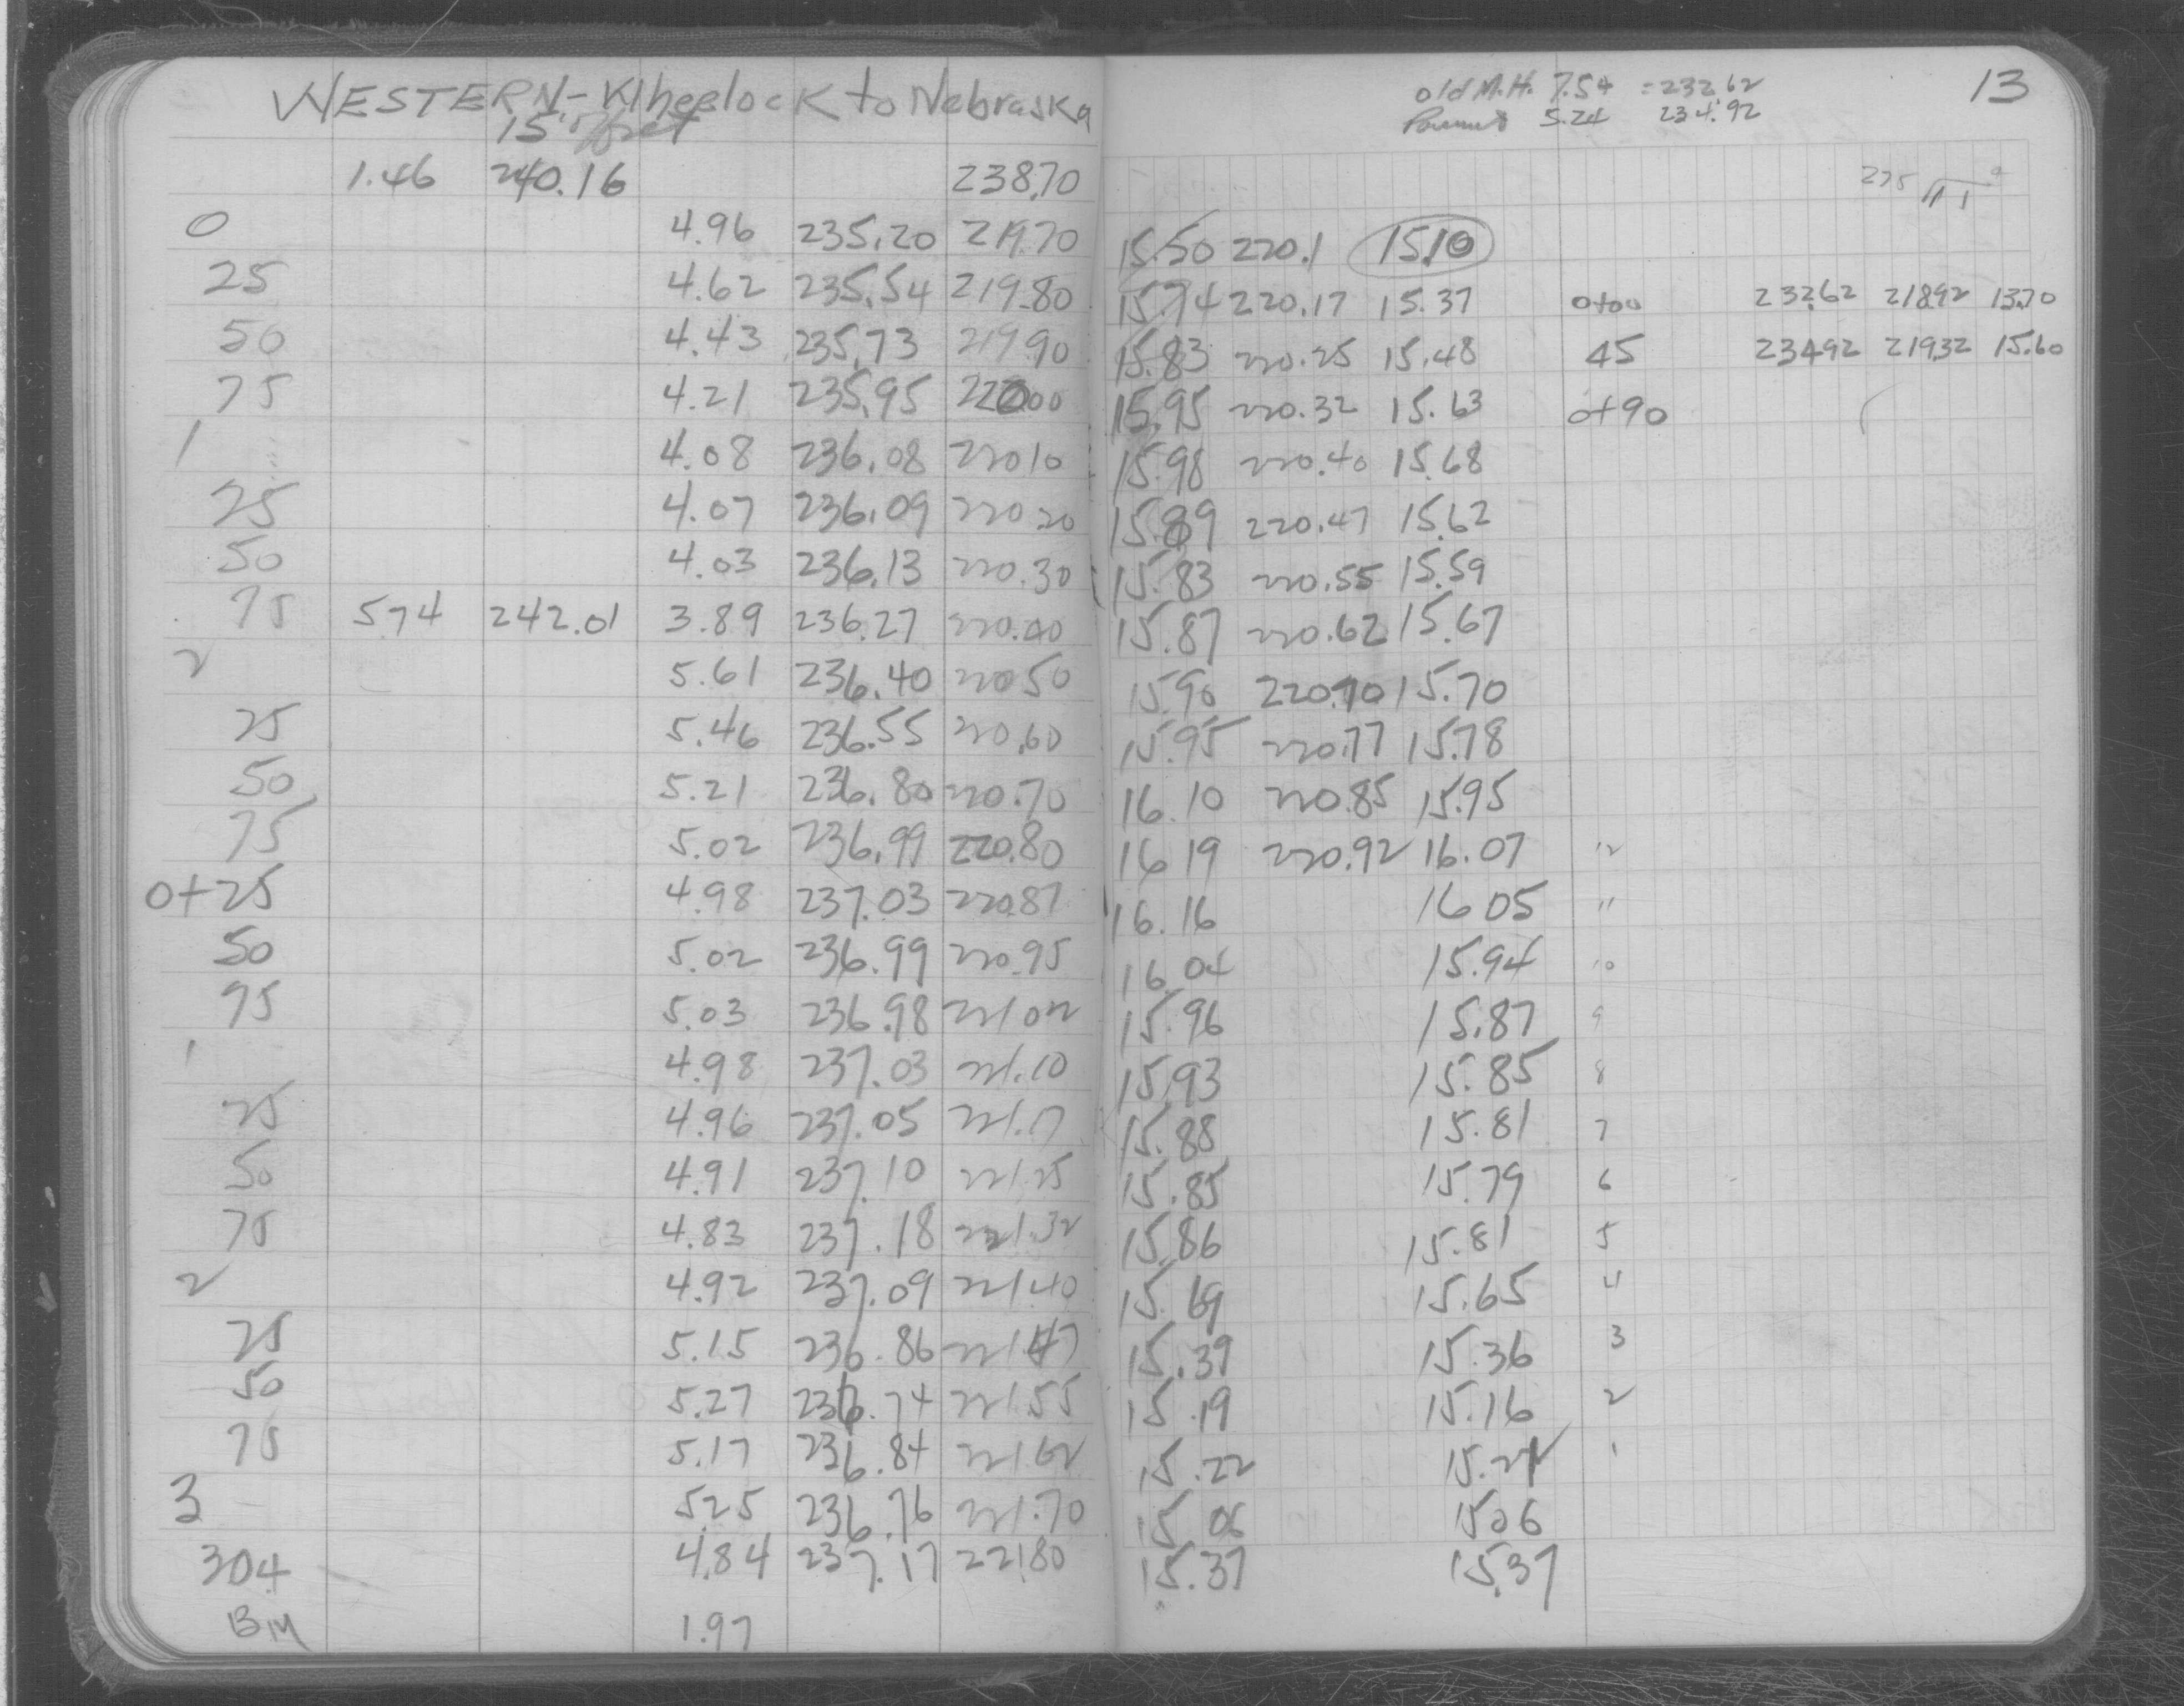 WESTERN - Wheelock to Nebraska
15' offset
1.46 240.16 238.70
0 4.96 235.20 219.70
25 4.62 235.54 219.80
50 4.43 235.73 219.90
75 4.21 235.95 220.00
1 4.08 236.08 220.10
25 4.07 236.09 220.20
50 4.03 236.13 220.30
75 5.74 242.01 3.89 236.27 220.40
2 5.61 236.40 220.50
25 5.46 236.55 220.60
50 5.21 236.80 220.70
75 5.02 236.99 220.80
0+25 4.98 237.03 220.87
50 5.02 236.99 220.95
75 5.03 236.98 221.02
1 4.98 237.03 221.10
25 4.96 237.05 221.17
50 4.91 237.10 221.25
75 4.83 237.18 221.32
2 4.92 237.09 221.40
25 5.15 236.86 221.47
50 5.27 236.74 221.55
75 5.17 236.84 221.62
3 5.25 236.76 221.70
304 4.84 237.17 221.80
BM 1.97
old M.H. 7.54 = 232.62
5.24 234.92
13
275
15.50 220.1 15.10
15.74 220.17 15.37 0+00 232.62 218.92 13.70
15.83 220.25 15.48 45 234.92 219.32 15.60
15.95 220.32 15.63 0+90
15.98 220.40 15.68
15.89 220.47 15.62
15.83 220.55 15.59
15.87 220.62 15.67
15.90 220.70 15.70
15.95 220.77 15.78
16.10 220.85 15.95
16.19 220.92 16.07 12
16.16 16.05 11
16.04 15.94 10
15.96 15.87 9
15.93 15.85 8
15.88 15.81 7
15.85 15.79 6
15.86 15.81 5
15.69 15.65 4
15.39 15.36 3
15.19 15.16 2
15.22 15.22 1
15.06 15.06
15.37 15.37